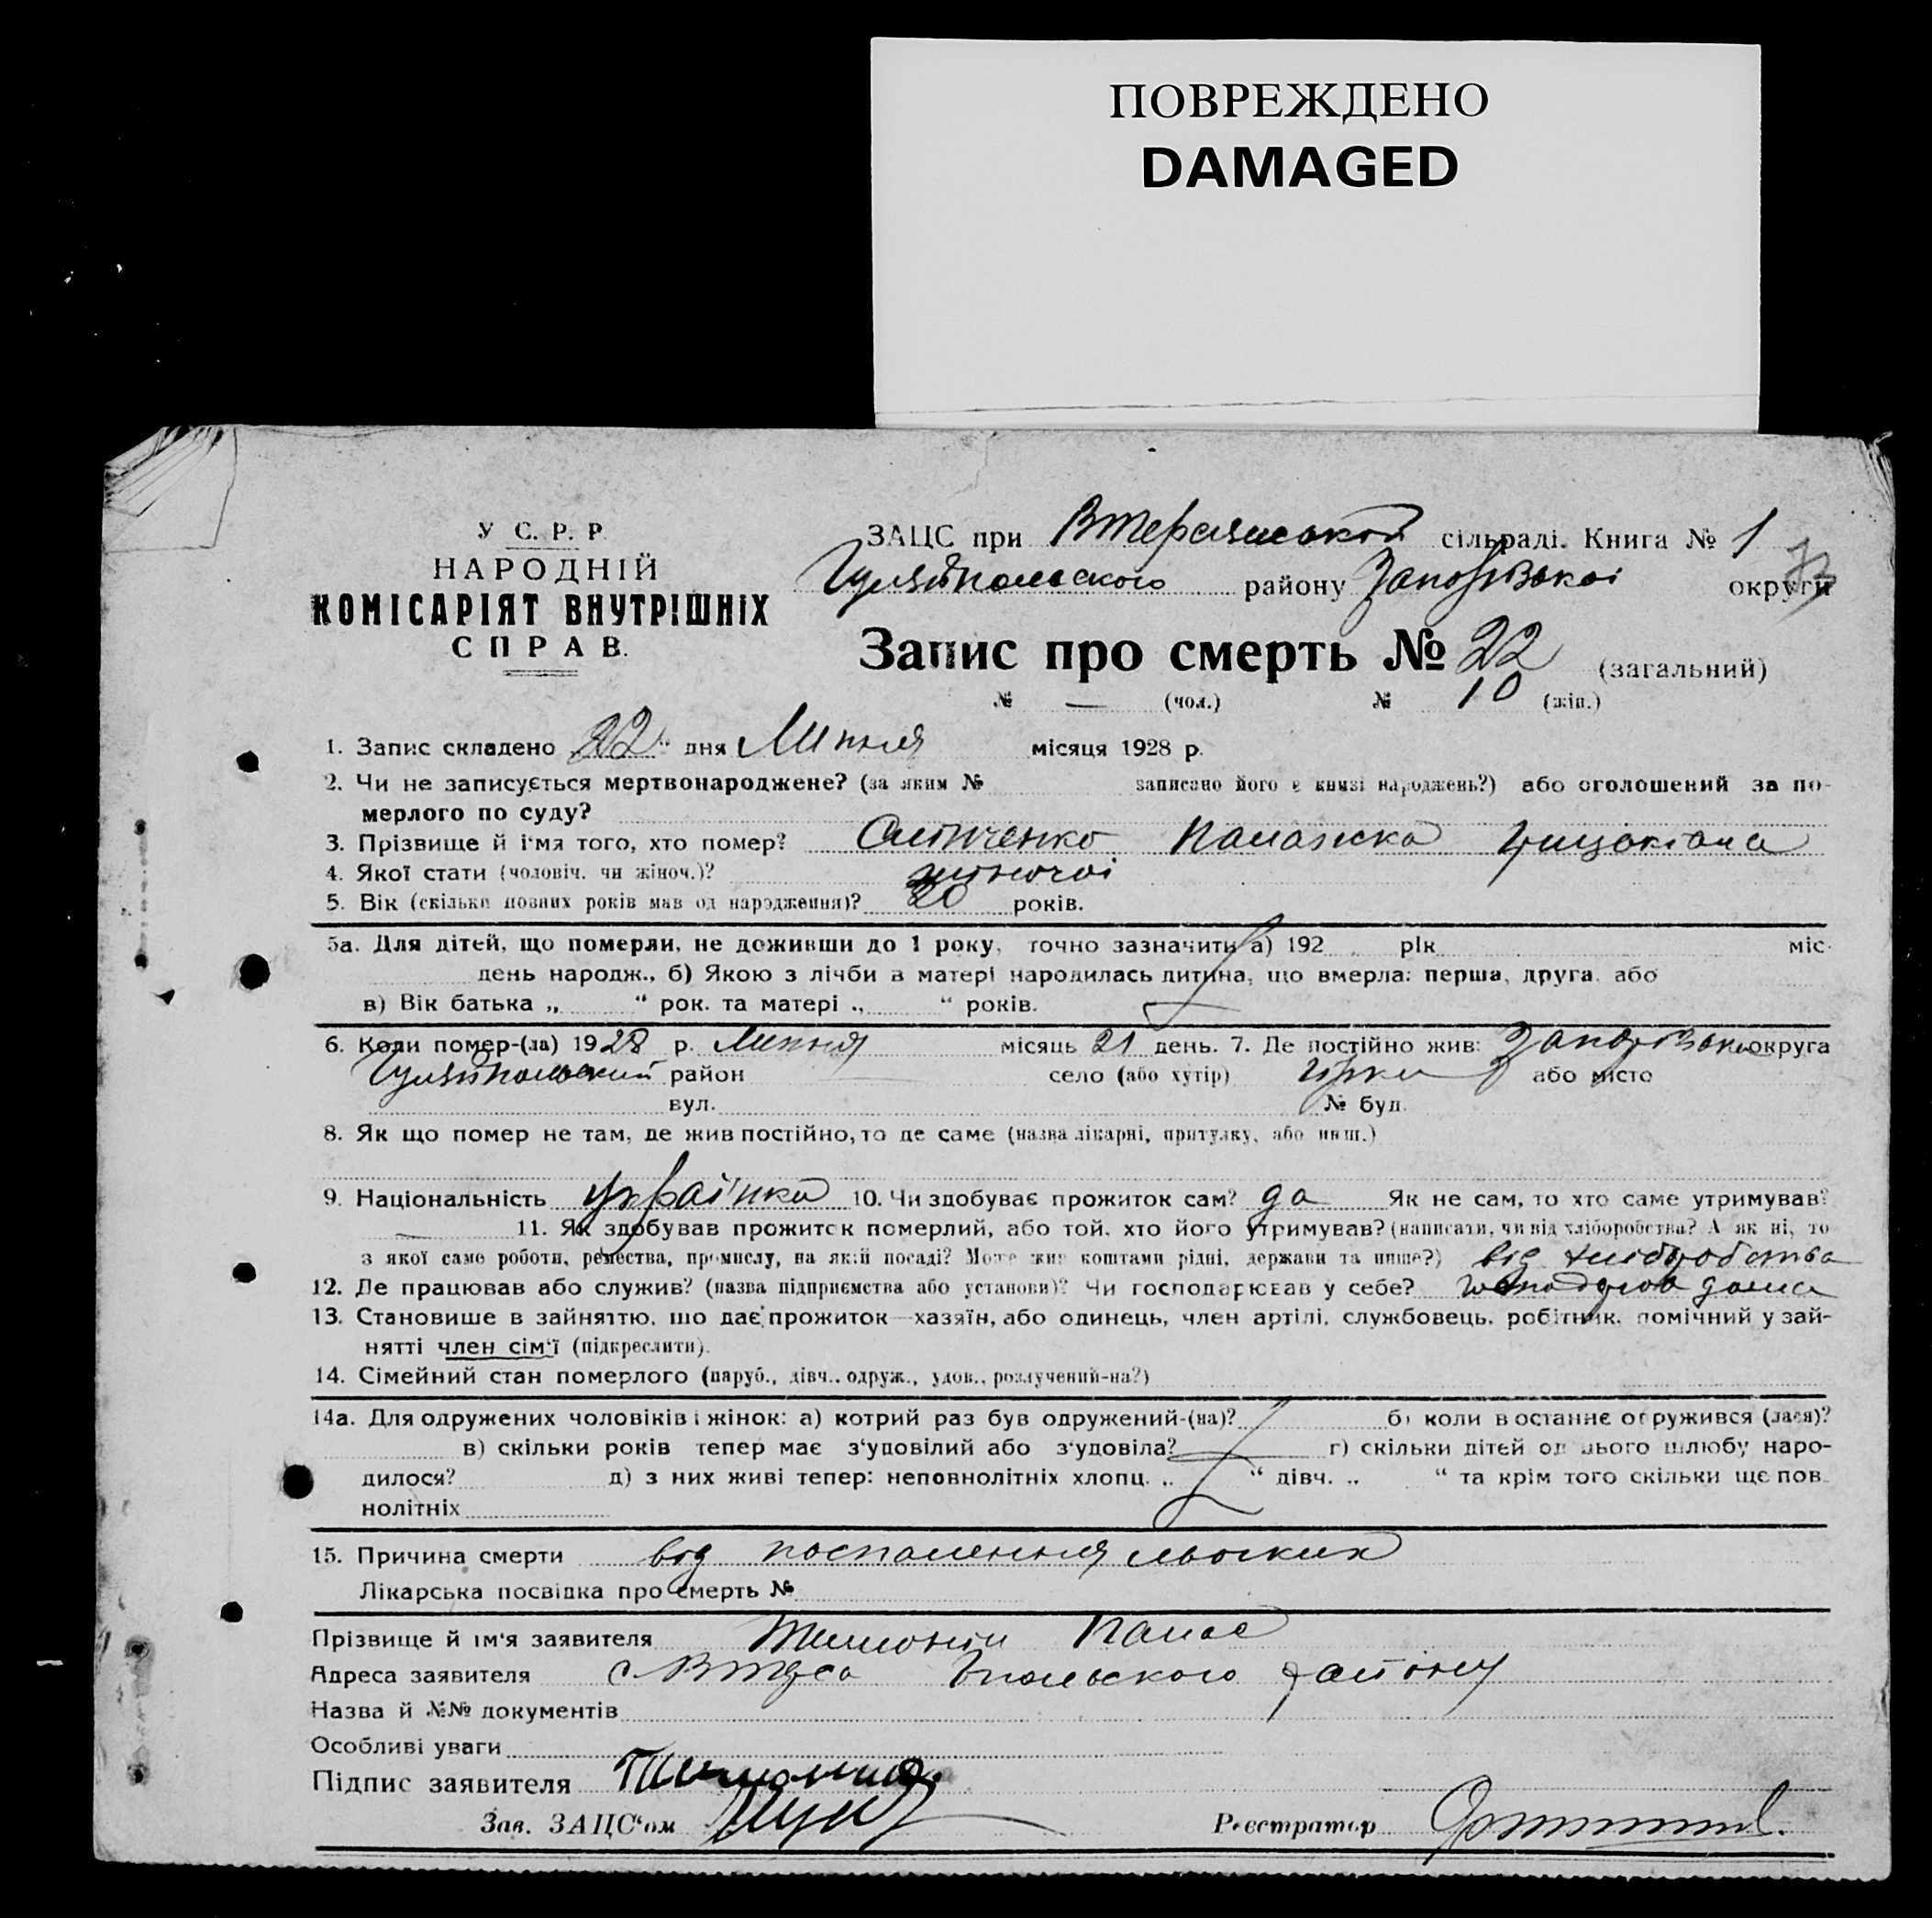 ПОВРЕЖДЕНО
DAMAGED
У С. Р. Р.
НАРОДНІЙ
КОМІСАРІЯТ ВНУТРІШНІХ
СПРАВ.
ЗАЦС при сільраді. Книга № 1
Гуляйпольського району Запорізькоі округи
Запис про смерть № 22 (загальний)
№ — (чол.) № 10 (жін.)
1. Запис складено „22“ дня Липня місяця 1928 р.
2. Чи не записується мертвонароджене? (за яким № записано його в книзі народжень?) або оголошений за по-
мерлого по суду?
3. Прізвище й ім'я того, хто помер?
4. Якої стати (чоловіч. чи жіноч.)? жіночоі
5. Вік (скільки повних років мав од народження)? 20 років.
5а. Для дітей, що померли, не доживши до 1 року, точно зазначити а) 192 рік міс.
день народж., б) Якою з лічби в матері народилась дитина, що вмерла: перша, друга або
в) Вік батька „ “ рок. та матері „ “ років.
6. Коли помер-(ла) 1928 р. Липня місяць 21 день. 7. Де постійно жив: Запорізька округа
Гуляйпольский район село (або хутір) або місто
вул. № буд.
8. Як що помер не там, де жив постійно, то де саме (назва лікарні, притулку, або инш.)
9. Національність українка 10. Чи здобуває прожиток сам? да Як не сам, то хто саме утримував?
— 11. Як здобував прожиток померлий, або той, хто його утримував? (написати, чи від хліборобства? А як ні, то
з якої саме роботи, ремества, промислу, на якій посаді? Може жив коштами рідні, держави та инше?) від хліборобства
12. Де працював або служив? (назва підприємства або установи)? Чи господарював у себе? дома
13. Становише в зайняттю, що дає прожиток—хазяїн, або одинець, член артілі, службовець, робітник, помічний у зай-
нятті член сім'ї (підкреслити).
14. Сімейний стан померлого (паруб., дівч., одруж., удов., розлучений-на?)
14а. Для одружених чоловіків і жінок: а) котрий раз був одружений-(на)? б) коли востаннє одружився (лася)?
в) скільки років тепер має з'удовілий або з'удовіла? г) скільки дітей од цього шлюбу наро-
дилося? д) з них живі тепер: неповнолітніх хлопц. „ “ дівч. „ “ та крім того скільки ще пов-
нолітніх
15. Причина смерти від льогких
Лікарська посвідка про смерть №
Прізвище й ім'я заявителя Панас
Адреса заявителя району
Назва й №№ документів
Особливі уваги
Підпис заявителя
Зав. ЗАЦС'ом Реєстратор